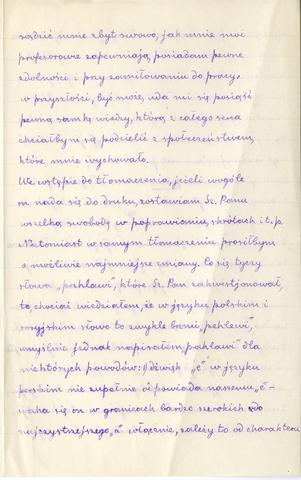 sądzić mnie zbyt surowo; jak mnie moi
profesorowie zapewniają, posiadam pewne
zdolności i przy zamiłowaniu do pracy,
w przyszłości, być może, uda mi się posiąść
pewną sumkę wiedzy, którą z całego serca
chciałbym się podzielić z społeczeństwem,
które mnie wychowało.
We wstępie do tłomaczenia, jeżeli wogóle
on nada się do druku, zostawiam Sz. Panu
wszelką swobodę w poprawianiu, skrótach i t.p.
Natomiast w samym tłomaczeniu prosiłbym
o możliwie najmniejsze zmiany. Co się tyczy
słowa „pahlawi", które Sz. Pan zakwestjonował,
to, chociaż wiedziałem, że w języku polskim i
rosyjskim słowo to zwykle brzmi „pehlewi",
umyślnie jednak napisałem „pahlawi" dla
niektórych powodów: 1) dźwięk „e" w języku
perskim nie zupełnie odpowiada naszemu „e" –
waha się on w granicach bardzo szerokich do
najczystrzejszego „a" włącznie, zależy to od charakteru